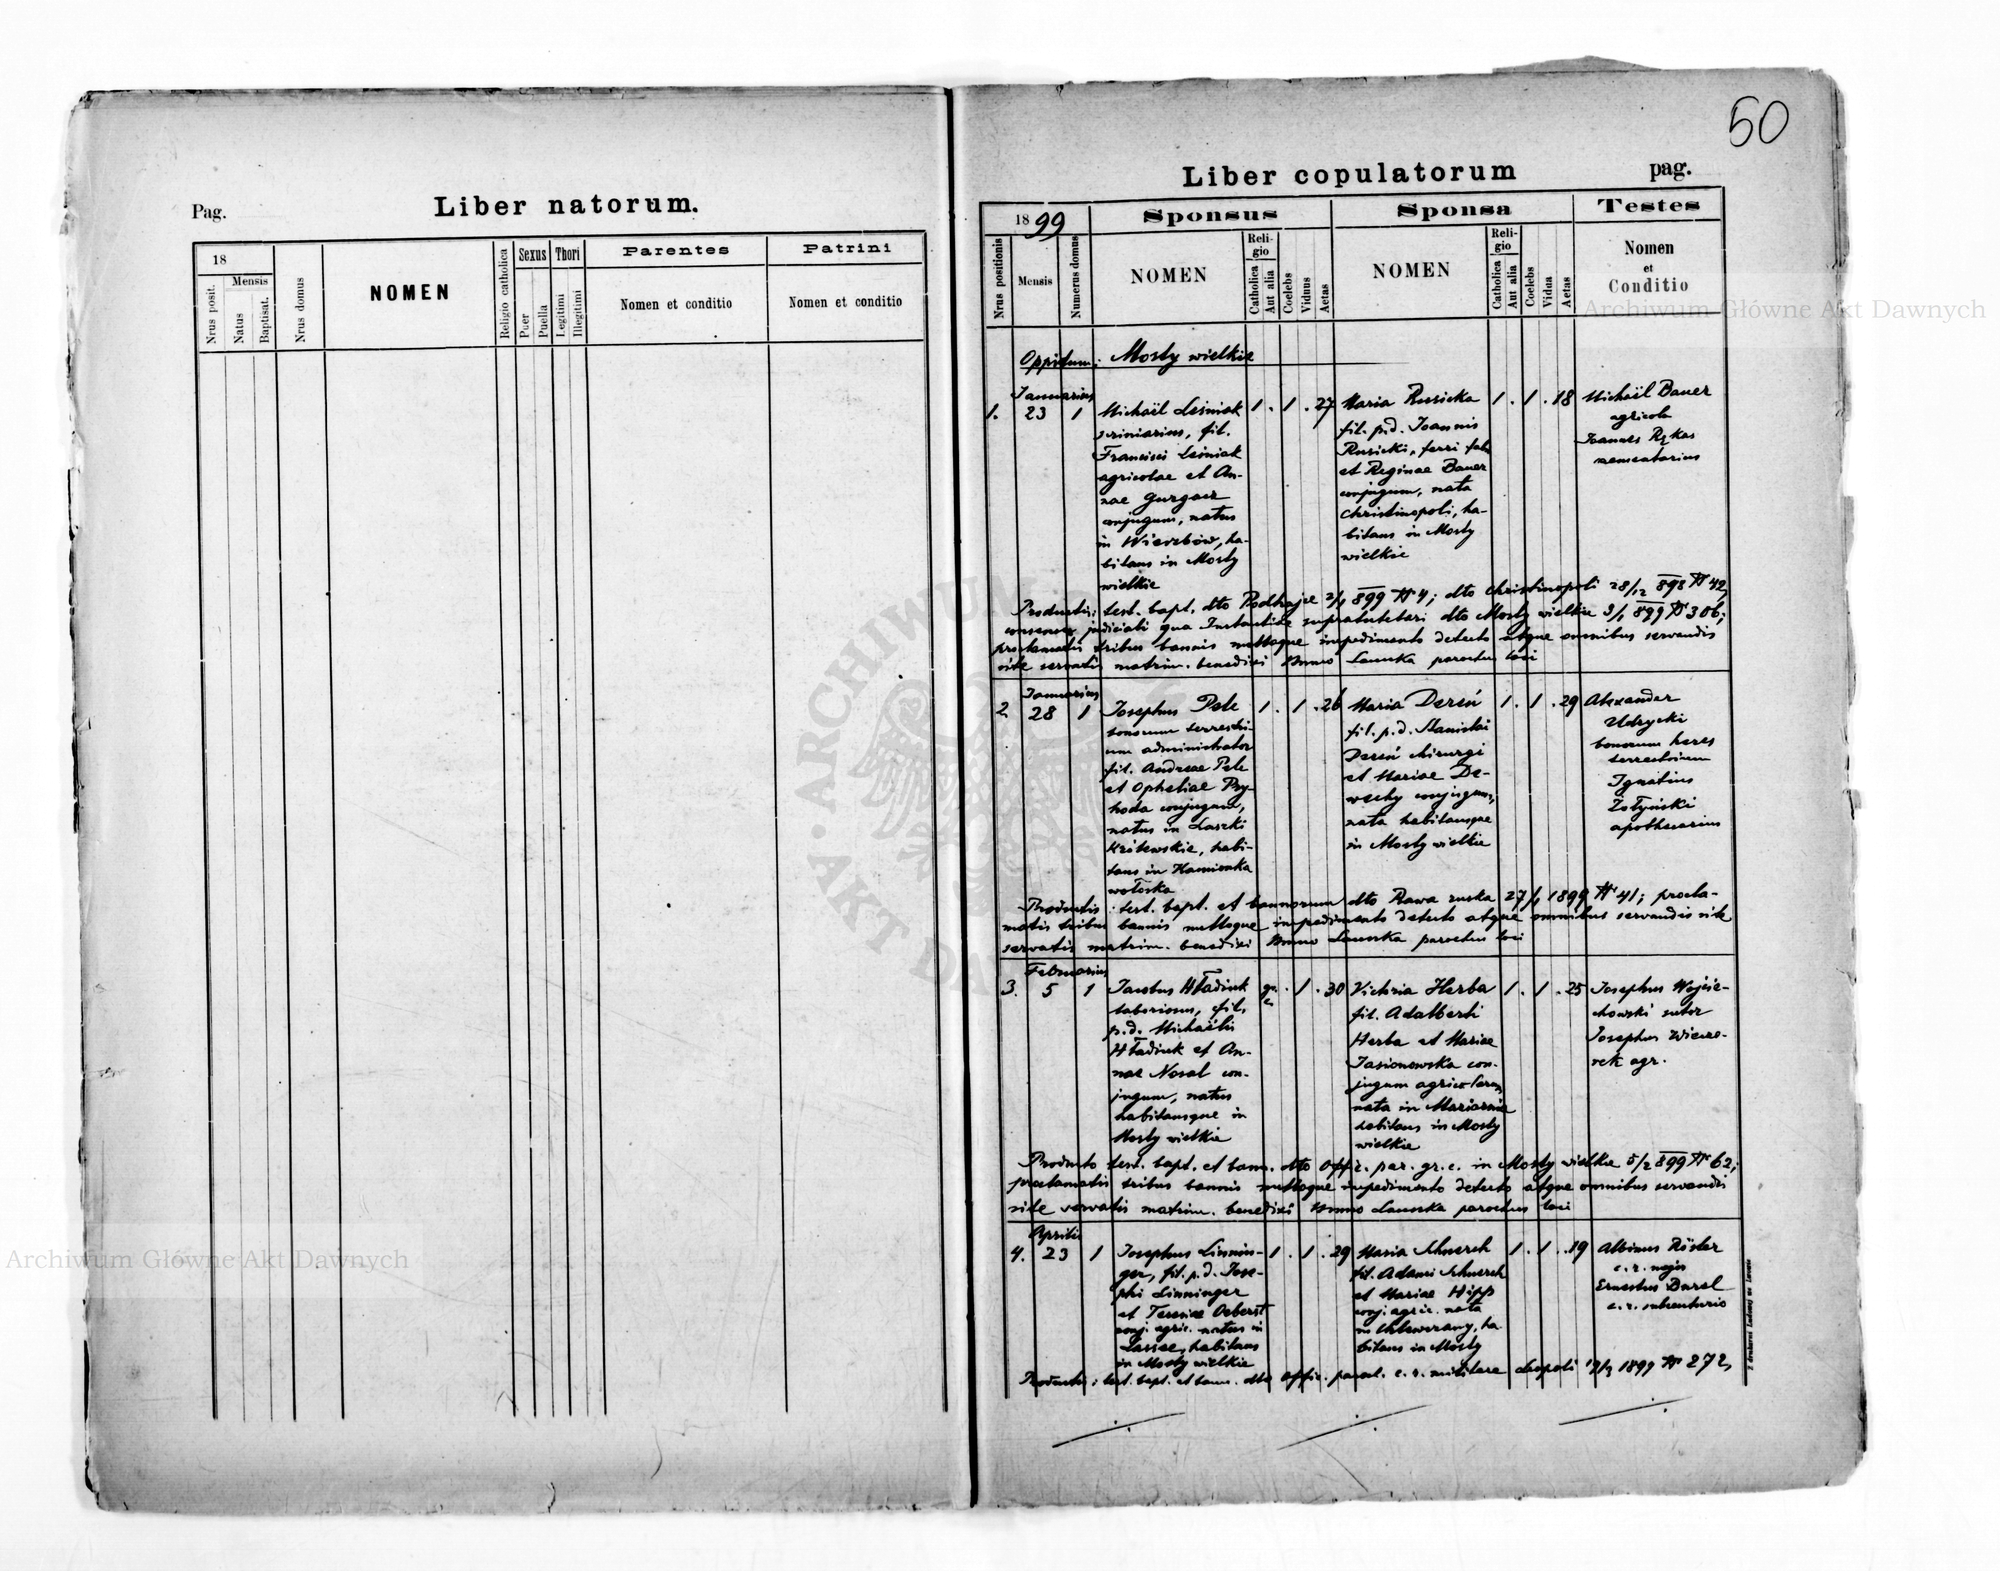 50
Pag.
Liber natorum.
18
Mensis
Nrus posit.
Natus
Baptisat.
Nrus domus
NOMEN
Religio catholica
Sexus
Puer
Puella
Thori
Legitimi
Illegitimi
Parentes
Nomen et conditio
Patrini
Nomen et conditio
Liber copulatorum
pag.
1899
Nrus positionis
Mensis
Numerus domus
Sponsus
NOMEN
Religio
Catholica
Aut alia
Coelebs
Viduus
Aetas
Sponsa
NOMEN
Religio
Catholica
Aut alia
Coelebs
Vidua
Aetas
Testes
Nomen
et
Conditio
Oppidum: Mosty wielkie
Januarius
1. 23 1
Michaël Leśniak
scriniarius, fil.
Francisci Leśniak
agricolae et An-
nae Gurgacz
conjugum, natus
in Wierzbów, ha-
bitans in Mosty
wielkie
1 . 1 . 27
Maria Rusicka
fil. p.d. Joannis
Rusicki, ferri fab.
et Reginae Bauer
conjugum, nata
Christinopoli, ha-
bitans in Mosty
wielkie
1 . 1 . 18
Michaël Bauer
agricola
Joannes Rykas
Productis: test. bapt. dto Podhajce 2/1 899 № 4; dto Christinopoli 28/12 898 № 42,
judiciali qua Instantiae supratutelari dto Mosty wielkie 3/1 899 № 306;
proclamatis tribus bannis nulloque impedimento detecto atque omnibus servandis
rite servatis matrim. benedixi Bruno parochus loci
Januarius
2 28 1
Josephus Pele
bonorum terrestri-
um administrator
fil. Andreae Pele
et Opheliae Pry-
hoda conjugum,
natus in Laszki
habi-
tans in Kamionka
wołoska
1 . 1 . 26
Maria Dereń
fil. p.d. Stanislai
Dereń chirurgi
et Mariae De-
wechy conjugum,
nata habitansque
in Mosty wielkie
1 . 1 . 29
Alexander
Udrycki
bonorum heres
terrestrium
Ignatius
Żołyński
apothecarius
Productis: test. bapt. et bannorum dto Rawa ruska 27/1 1899 № 41; procla-
matis tribus bannis nulloque impedimento detecto atque omnibus servandis rite
servatis matrim. benedixi Bruno parochus loci
Februarius
3. 5 1
Jacobus Hładiuk
laboriosus, fil.
p.d. Michaëlis
Hładiuk et An-
nae Nosal con-
jugum, natus
habitansque in
Mosty wielkie
gr. c. . 1 . 30
Victoria Herba
fil. Adalberti
Herba et Mariae
Jasionowska con-
jugum agricolarum,
nata in
habitans in Mosty
wielkie
1 . 1 . 25
Josephus Wojcie-
chowski sutor
Josephus Wieczo-
rek agr.
Producto test. bapt. et bann. dto Off. par. gr. c. in Mosty wielkie 5/2 899 № 62;
proclamatis tribus bannis nulloque impedimento detecto atque omnibus servandis
rite servatis matrim. benedixi Bruno parochus loci
Aprilis
4. 23 1
Josephus Linnin-
ger, fil. p.d. Jose-
phi Linninger
et Teresiae Oeberst
conj. agric. natus in
habitans
in Mosty wielkie
1 . 1 . 29
Maria Schnerch
fil. Adami Schnerch
et Mariae Hipp
conj. agric. nata
in ha-
bitans in Mosty
1 . 1 . 19
Albinus Rösler
c. r. major
Ernestus Barel
c. r. subcenturio
Productis: test. bapt. et bann. dto offic. paroch. c. r. militare Leopoli 1899 № 272,
Archiwum Główne Akt Dawnych
Archiwum Główne Akt Dawnych